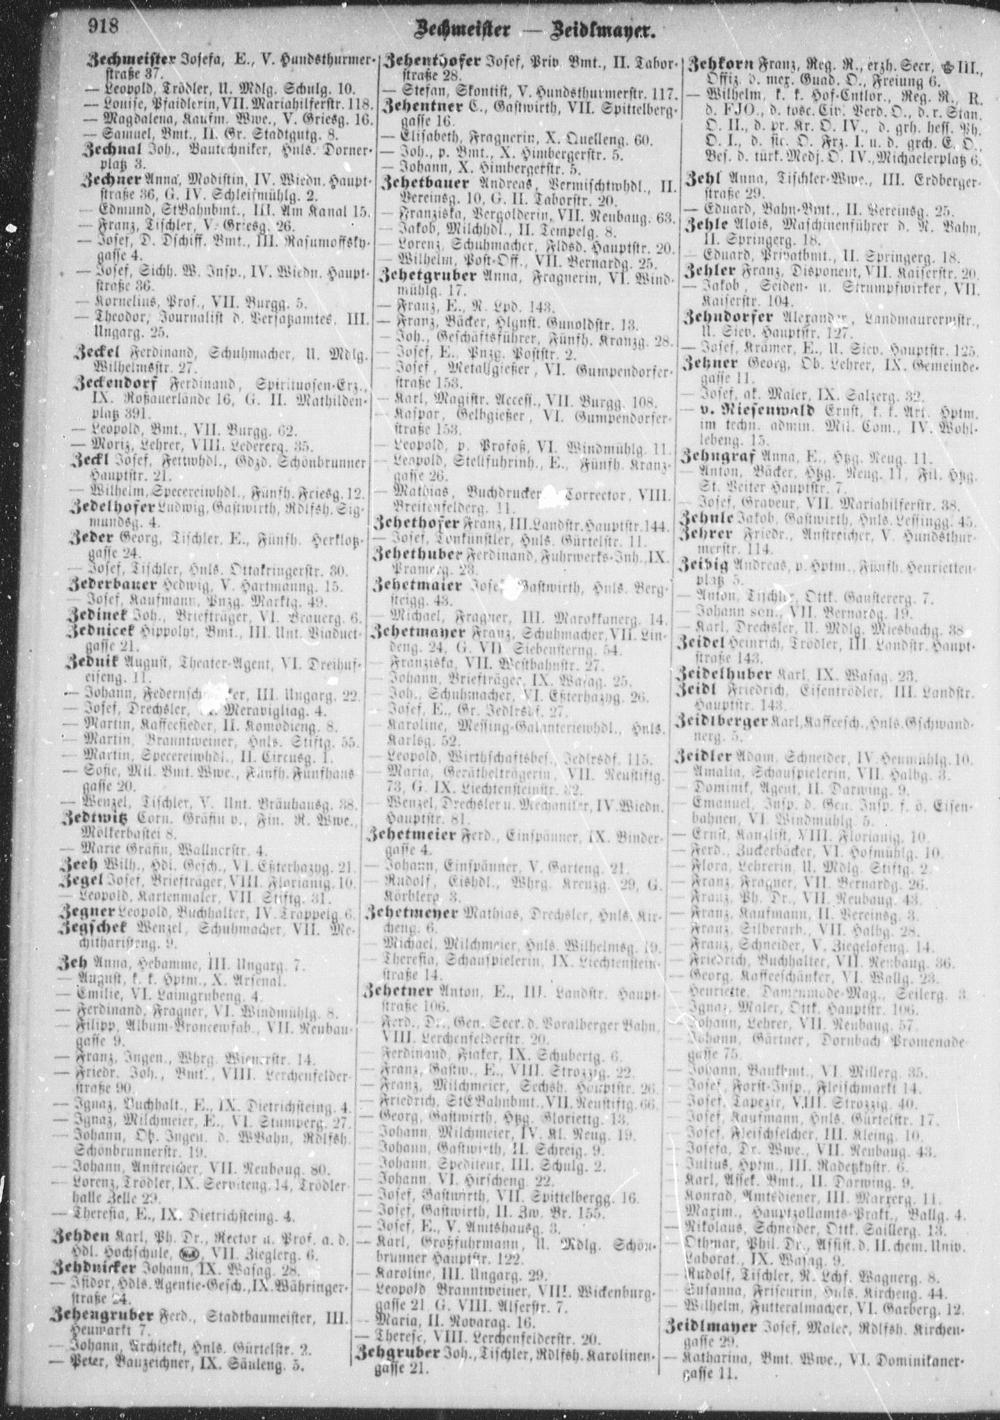 918
Zechmeister — Zeidlmayer.
Zechmeister Josefa, E., V. Hundsthurmer-
straße 37.
— Leopold, Trödler, U. Mdlg. Schulg. 10.
— Louise, Pfaidlerin, VII. Mariahilferstr. 118.
— Magdalena, Kaufm. Wwe., V. Griesg. 16.
— Samuel, Bmt., II. Gr. Stadtgutg. 8.
Zechnal Joh., Bautechniker, Hnls. Dorner-
platz 3.
Zechner Anna, Modistin, IV. Wiedn. Haupt-
straße 36, G. IV. Schleifmühlg. 2.
— Edmund, StBahnbmt., III. Am Kanal 15.
— Franz, Tischler, V. Griesg. 26.
— Josef, D. Dschiff. Bmt., III. Rasumoffsky-
gasse 4.
— Josef, Sichh. W. Insp., IV. Wiedn. Haupt-
straße 36.
— Kornelius, Prof., VII. Burgg. 5.
— Theodor, Journalist d. Versatzamtes, III.
Ungarg. 25.
Zeckel Ferdinand, Schuhmacher, U. Mdlg.
Wilhelmsstr. 27.
Zeckendorf Ferdinand, Spirituosen-Erz.,
IX. Roßauerlände 16, G. II. Mathilden-
platz 391.
— Leopold, Bmt., VII. Burgg. 62.
— Moriz, Lehrer, VIII. Lederergg. 35.
Zeckl Josef, Fettwhdl., Gdzd. Schönbrunner
Hauptstr. 21.
— Wilhelm, Specereiwhdl., Fünfh. Friesg. 12.
Zedelhofer Ludwig, Gastwirth, Rdlfsh. Sig-
mundsg. 4.
Zeder Georg, Tischler, E., Fünfh. Herklotz-
gasse 24.
— Josef, Tischler, Hnls. Ottakringerstr. 30.
Zederbauer Hedwig, V. Hartmanng. 15.
— Josef, Kaufmann, Pnzg. Marktg. 49.
Zedinek Joh., Briefträger, VI. Brauerg. 6.
Zednicek Hippolyt, Bmt., III. Unt. Viaduct-
gasse 21.
Zednik August, Theater-Agent, VI. Dreihuf-
eiseng. 11.
— Johann, III. Ungarg. 22.
— Josef, Drechsler, Meravigliag. 4.
— Martin, Kaffeesieder, II. Komödieng. 8.
— Martin, Branntweiner, Hnls. Stiftg. 55.
— Martin, Specereiwhdl., II. Circusg. 1.
— Sofie, Mil. Bmt. Wwe., Fünfh. Fünfhaus
gasse 20.
— Wenzel, Tischler, V. Unt. Bräuhausg. 38.
Zedtwitz Corn. Gräfin v., Fin. R. Wwe.,
Mölkerbastei 8.
— Marie Gräfin, Wallnerstr. 4.
Zeeh Wilh., Hdl. Gesch., VI. Eßterhazyg. 21.
Zegel Josef, Briefträger, VIII. Florianig. 10.
— Leopold, Kartenmaler, VII. Stiftg. 31.
Zegner Leopold, Buchhalter, IV. Trappelg. 6.
Zegschek Wenzel, Schuhmacher, VII. Me-
chitharisteng. 9.
Zeh Anna, Hebamme, III. Ungarg. 7.
— August, k. k. Hptm., X. Arsenal.
— Emilie, VI. Laimgrubeng. 4.
— Ferdinand, Fragner, VI. Windmühlg. 8.
— Filipp, Album-Broncewfab., VII. Neubau-
gasse 9.
— Franz, Ingen., Whrg. Wienerstr. 14.
— Friedr. Joh., Bmt., VIII. Lerchenfelder-
straße 90.
— Ignaz, Buchhalt., E., IX. Dietrichsteing. 4.
— Ignaz, Milchmeier, E., VI. Stumperg. 27.
— Johann, Ob. Ingen. d. WBahn, Rdlfsh.
Schönbrunnerstr. 19.
— Johann, Anstreicher, VII. Neubaug. 80.
— Lorenz, Trödler, IX. Serviteng. 14, Trödler-
halle Zelle 29.
— Theresia, E., IX. Dietrichsteing. 4.
Zehden Karl, Ph. Dr., Rector u. Prof. a. d.
Hdl. Hochschule, VII. Zieglerg. 6.
Zehdnicker Johann, IX. Wasag. 28.
— Isidor, Hdls. Agentie-Gesch., IX. Währinger-
straße 24.
Zehengruber Ferd., Stadtbaumeister, III.
Heumarkt 7.
— Johann, Architekt, Hnls. Gürtelstr. 2.
— Peter, Bauzeichner, IX. Säuleng. 5.
Zehenthofer Josef, Priv. Bmt., II. Tabor-
straße 28.
— Stefan, Skontist, V. Hundsthurmerstr. 117.
Zehentner C., Gastwirth, VII. Spittelberg-
gasse 16.
— Elisabeth, Fragnerin, X. Quelleng. 60.
— Joh., p. Bmt., X. Himbergerstr. 5.
— Johann, X. Himbergerstr. 5.
Zehetbauer Andreas, Vermischtwhdl., II.
Vereinsg. 10, G. II. Taborstr. 20.
— Franziska, Vergolderin, VII. Neubaug. 63.
— Jakob, Milchhdl., II. Tempelg. 8.
— Lorenz, Schuhmacher, Fldsd. Hauptstr. 20.
— Wilhelm, Post-Off., VII. Bernardg. 25.
Zehetgruber Anna, Fragnerin, VI. Wind-
mühlg. 17.
— Franz, E., N. Lpd. 143.
— Franz, Bäcker, Hlgnst. Gunoldstr. 13.
— Joh., Geschäftsführer, Fünfh. Kranzg. 28.
— Josef, E., Pnzg. Poststr. 2.
— Josef, Metallgießer, VI. Gumpendorfer-
straße 153.
— Karl, Magistr. Access., VII. Burgg. 108.
— Kaspar, Gelbgießer, VI. Gumpendorfer-
straße 153.
— Leopold, p. Profoß, VI. Windmühlg. 11.
— Leopold, Stellfuhrinh., E., Fünfh. Kranz-
gasse 26.
— Mathias, Corrector, VIII.
Breitenfelderg. 11.
Zehethofer Franz, III. Landstr. Hauptstr. 144.
— Josef, Tonkünstler, Hnls. Gürtelstr. 11.
Zehethuber Ferdinand, Fuhrwerks-Inh., IX.
Pramerg. 23.
Zehetmaier Josef, Gastwirth, Hnls. Berg-
steigg. 43.
— Michael, Fragner, III. Marokkanerg. 14.
Zehetmayer Franz, Schuhmacher, VII. Lin-
deng. 24, G. VII. Siebensterng. 54.
— Franziska, VII. Westbahnstr. 27.
— Johann, Briefträger, IX. Wasag. 25.
— Joh., Schuhmacher, VI. Eßterhazyg. 26.
— Josef, E., Gr. Jedlrsdf. 27.
— Karoline, Messing-Galanteriewhdl., Hnls.
Karlsg. 52.
— Leopold, Wirthschaftsbes., Jedlrsdf. 115.
— Maria, Geräthelträgerin, VII. Neustiftg.
73, G. IX. Liechtensteinstr. 32.
— Wenzel, Drechsler u. Mechaniker, IV. Wiedn.
Hauptstr. 81.
Zehetmeier Ferd., Einspänner, IX. Binder-
gasse 4.
— Johann, Einspänner, V. Garteng. 21.
— Rudolf, Eishdl., Whrg. Kreuzg. 29, G.
Körblerg. 3.
Zehetmeyer Mathias, Drechsler, Hnls. Kir-
cheng. 6.
— Michael, Milchmeier, Hnls. Wilhelmsg. 19.
— Theresia, Schauspielerin, IX. Liechtenstein-
straße 14.
Zehetner Anton, E., III. Landstr. Haupt-
straße 106.
— Ferd., Dr., Gen. Secr. d. Voralberger Bahn,
VIII. Lerchenfelderstr. 20.
— Ferdinand, Fiaker, IX. Schubertg. 6.
— Franz, Gastw., E., VIII. Strozzig. 22.
— Franz, Milchmeier, Sechsh. Hauptstr. 26.
— Friedrich, StEBahnbmt., VII. Neustiftg. 66.
— Georg, Gastwirth, Htzg. Gloriettg. 13.
— Johann, Milchmeier, IV. Kl. Neug. 19.
— Johann, Gastwirth, II. Schreig. 9.
— Johann, Spediteur, III. Schulg. 2.
— Johann, VI. Hirscheng. 22.
— Josef, Gastwirth, VII. Spittelbergg. 16.
— Josef, Gastwirth, II. Zw. Br. 155.
— Josef, E., V. Amtshausg. 3.
— Karl, Großfuhrmann, U. Mdlg. Schön-
brunner Hauptstr. 122.
— Karoline, III. Ungarg. 29.
— Leopold Branntweiner, VIII. Wickenburg-
gasse 21 G. VIII. Alserstr. 7.
— Maria, II. Novarag. 16.
— Therese, VIII. Lerchenfelderstr. 20.
Zehgruber Joh., Tischler, Rdlfsh. Karolinen-
gasse 21.
Zehkorn Franz, Reg. R., erzh. Secr, III.,
Offiz. d. mex. Guad. O., Freiung 6.
— Wilhelm, k. k. Hof-Cntlor., Reg. R., R.
d. FJO., d. tosc. Civ. Verd. O., d. r. Stan.
O. II., d. pr. Kr. O. IV., d. grh. hess. Ph.
O. I., d. sic. O. Frz. I. u. d. grch. E. O.,
Bes. d. türk. Medj. O. IV., Michaelerplatz 6.
Zehl Anna, Tischler-Wwe., III. Erdberger-
straße 29.
— Eduard, Bahn-Bmt., II. Vereinsg. 25.
Zehle Alois, Maschinenführer d. N. Bahn,
II. Springerg. 18.
— Eduard, Privatbmt., II. Springerg. 18.
Zehler Franz, Disponent, VII. Kaiserstr. 20.
— Jakob, Seiden- u. Strumpfwirker, VII.
Kaiserstr. 104.
Zehndorfer Alexander, Landmaurermstr.,
U. Siev. Hauptstr. 127.
— Josef, Krämer, E., U. Siev. Hauptstr. 125.
Zehner Georg, Ob. Lehrer, IX. Gemeinde-
gasse 11.
— Josef, ak. Maler, IX. Salzerg. 32.
— v. Riesenwald Ernst, k. k. Art. Hptm.
im techn. admin. Mil. Com., IV. Wohl-
lebeng. 15.
Zehngraf Anna, E., Htzg. Neug. 11.
— Anton, Bäcker, Htzg. Neug. 11, Fil. Htzg.
St. Veiter Hauptstr. 7.
— Josef, Graveur, VII. Mariahilferstr. 38.
Zehnle Jakob, Gastwirth, Hnls. Lessingg. 45.
Zehrer Friedr., Anstreicher, V. Hundsthur-
merstr. 114.
Zeibig Andreas, p. Hptm., Fünfh. Henrietten-
platz 5.
— Anton, Tischler, Ottk. Gaustererg. 7.
— Johann sen., VII. Bernardg. 19.
— Karl, Drechsler, U. Mdlg. Miesbachg. 38
Zeidel Heinrich, Trödler, III. Landstr. Haupt-
straße 143.
Zeidelhuber Karl, IX. Wasag. 23.
Zeidl Friedrich, Eisentrödler, III. Landstr.
Hauptstr. 143.
Zeidlberger Karl, Kaffeesch., Hnls. Gschwand-
nerg. 5.
Zeidler Adam, Schneider, IV. Heumühlg. 10.
— Amalia, Schauspielerin, VII. Halbg. 3.
— Dominik, Agent, II. Darwing. 9.
— Emanuel, Insp. d. Gen. Insp. f. ö. Eisen-
bahnen, VI. Windmühlg. 5.
— Ernst, Kanzlist, VIII. Florianig. 10.
— Ferd., Zuckerbäcker, VI. Hofmühlg. 10.
— Flora, Lehrerin, U. Mdlg. Stiftg. 2.
— Franz, Fragner, VII. Bernardg. 26.
— Franz, Ph. Dr., VII. Neubaug. 43.
— Franz, Kaufmann, II. Vereinsg. 3.
— Franz, Silberarb., VII. Halbg. 28.
— Franz, Schneider, V. Ziegelofeng. 14.
— Friedrich, Buchhalter, VII. Neubaug. 36.
— Georg, Kaffeeschänker, VI. Wallg. 23.
— Henriette, Damenmode-Mag., Seilerg. 3.
— Ignaz, Maler, Ottk. Hauptstr. 106.
— Johann, Lehrer, VII. Neubaug. 57.
— Johann, Gärtner, Dornbach Promenade-
gasse 75.
— Johann, Bankbmt., VI. Millerg. 35.
— Josef, Forst-Insp., Fleischmarkt 14.
— Josef, Tapezir, VIII. Strozzig. 40.
— Josef, Kaufmann, Hnls. Gürtelstr. 17.
— Josef, Fleischselcher, III. Kleing. 10.
— Josefa, Dr. Wwe., VII. Neubaug. 43.
— Julius, Hptm., III. Radetzkystr. 6.
— Karl, Assek. Bmt., II. Darwing. 9.
— Konrad, Amtsdiener, III. Marxerg. 11.
— Maxim., Hauptzollamts-Prakt., Wallg. 4.
— Nikolaus, Schneider, Ottk. Saillerg. 13.
— Othmar, Phil. Dr., Assist. d. II. chem. Univ.
Laborat., IX. Wasag. 9.
— Rudolf, Tischler, N. Lchf. Wagnerg. 8.
— Susanna, Friseurin, Hnls. Kircheng. 44.
— Wilhelm, Futteralmacher, VI. Garberg. 12.
Zeidlmayer Josef, Maler, Rdlfsh. Kirchen-
gasse 29.
— Katharina, Bmt. Wwe., VI. Dominikaner-
gasse 11.